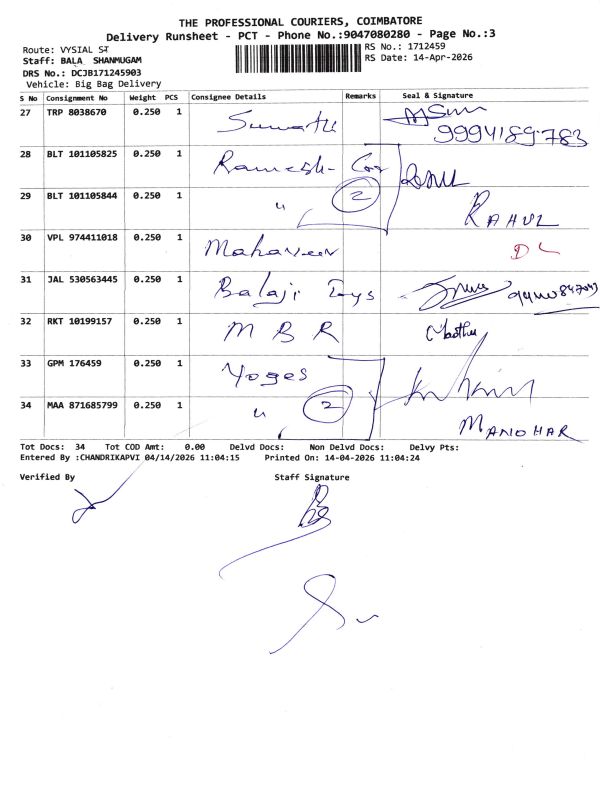 THE PROFESSIONAL COURIERS, COIMBATORE
Delivery Runsheet - PCT - Phone No.:9047080280 - Page No.:3
Route: VYSIAL ST
RS No.: 1712459
Staff: BALA SHANMUGAM
RS Date: 14-Apr-2026
DRS No.: DCJB171245903
Vehicle: Big Bag Delivery
S No Consignment No Weight PCS Consignee Details Remarks Seal & Signature
27 TRP 8038670 0.250 1
9994189783
28 BLT 101105825 0.250 1 Ramesh
29 BLT 101105844 0.250 1 " 2 RAHUL
30 VPL 974411018 0.250 1 Mahaveer DL
31 JAL 530563445 0.250 1 Balaji
32 RKT 10199157 0.250 1 M B R Madhu
33 GPM 176459 0.250 1 Yoges
34 MAA 871685799 0.250 1 " 2 MANOHAR
Tot Docs: 34 Tot COD Amt: 0.00 Delvd Docs: Non Delvd Docs: Delvy Pts:
Entered By :CHANDRIKAPVI 04/14/2026 11:04:15 Printed On: 14-04-2026 11:04:24
Verified By Staff Signature